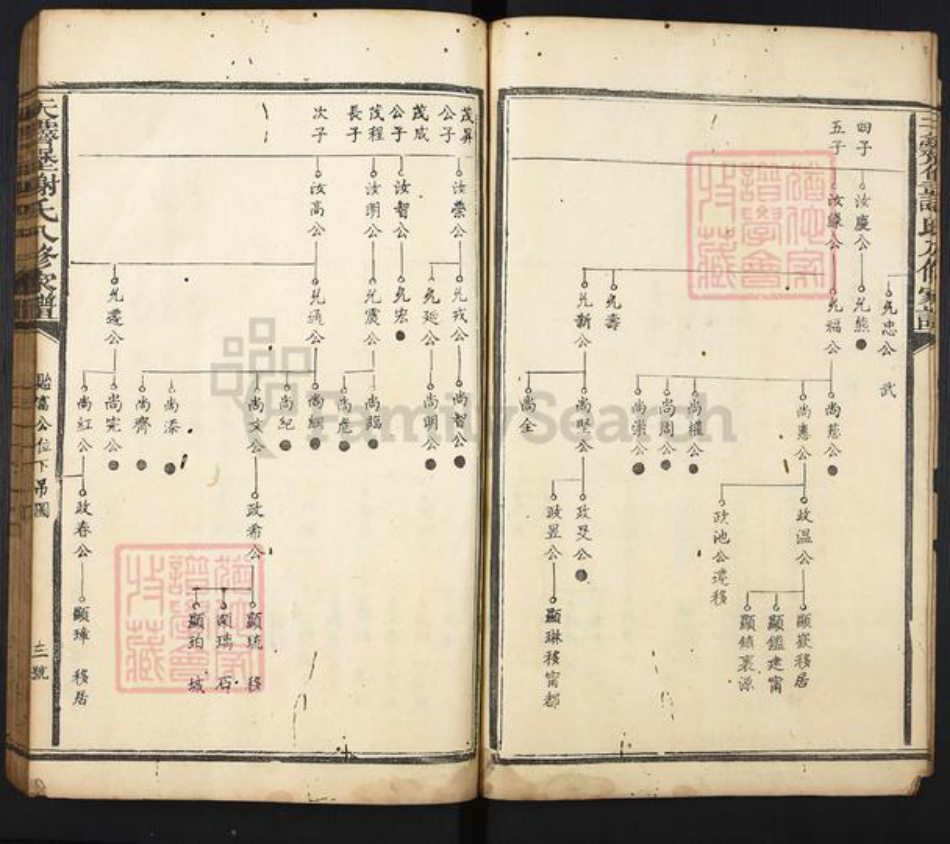 四子
五子
汝慶公
汝緣公
允忠公
武
允熊
允福公
允壽
允新公
尚慈公
尚惠公
尚權公
尚周公
尚崇公
尚堅公
尚全
政溫公
政池公遷移
政旻公
政昱公
顯嶽移居
顯鑑建甯
顯鎮裏源
顯琳移甯都
茂昇
公子
茂成
公子
茂程
長子
次子
汝崇公
汝智公
汝明公
汝高公
允戎公
允延公
允宏
允震公
允通公
允遷公
尚智公
尚明公
尚臨
尚危
尚綱
尚紀
尚文公
尚漆
尚齊
尚完公
尚紅公
政希公
政春公
顯琉 移
顯瑞 石
顯珀 城
顯璋 移居
天爵堂謝氏八修家譜
貽富公位下吊圖
三號
猶他家
譜學會
收藏
FamilySearch